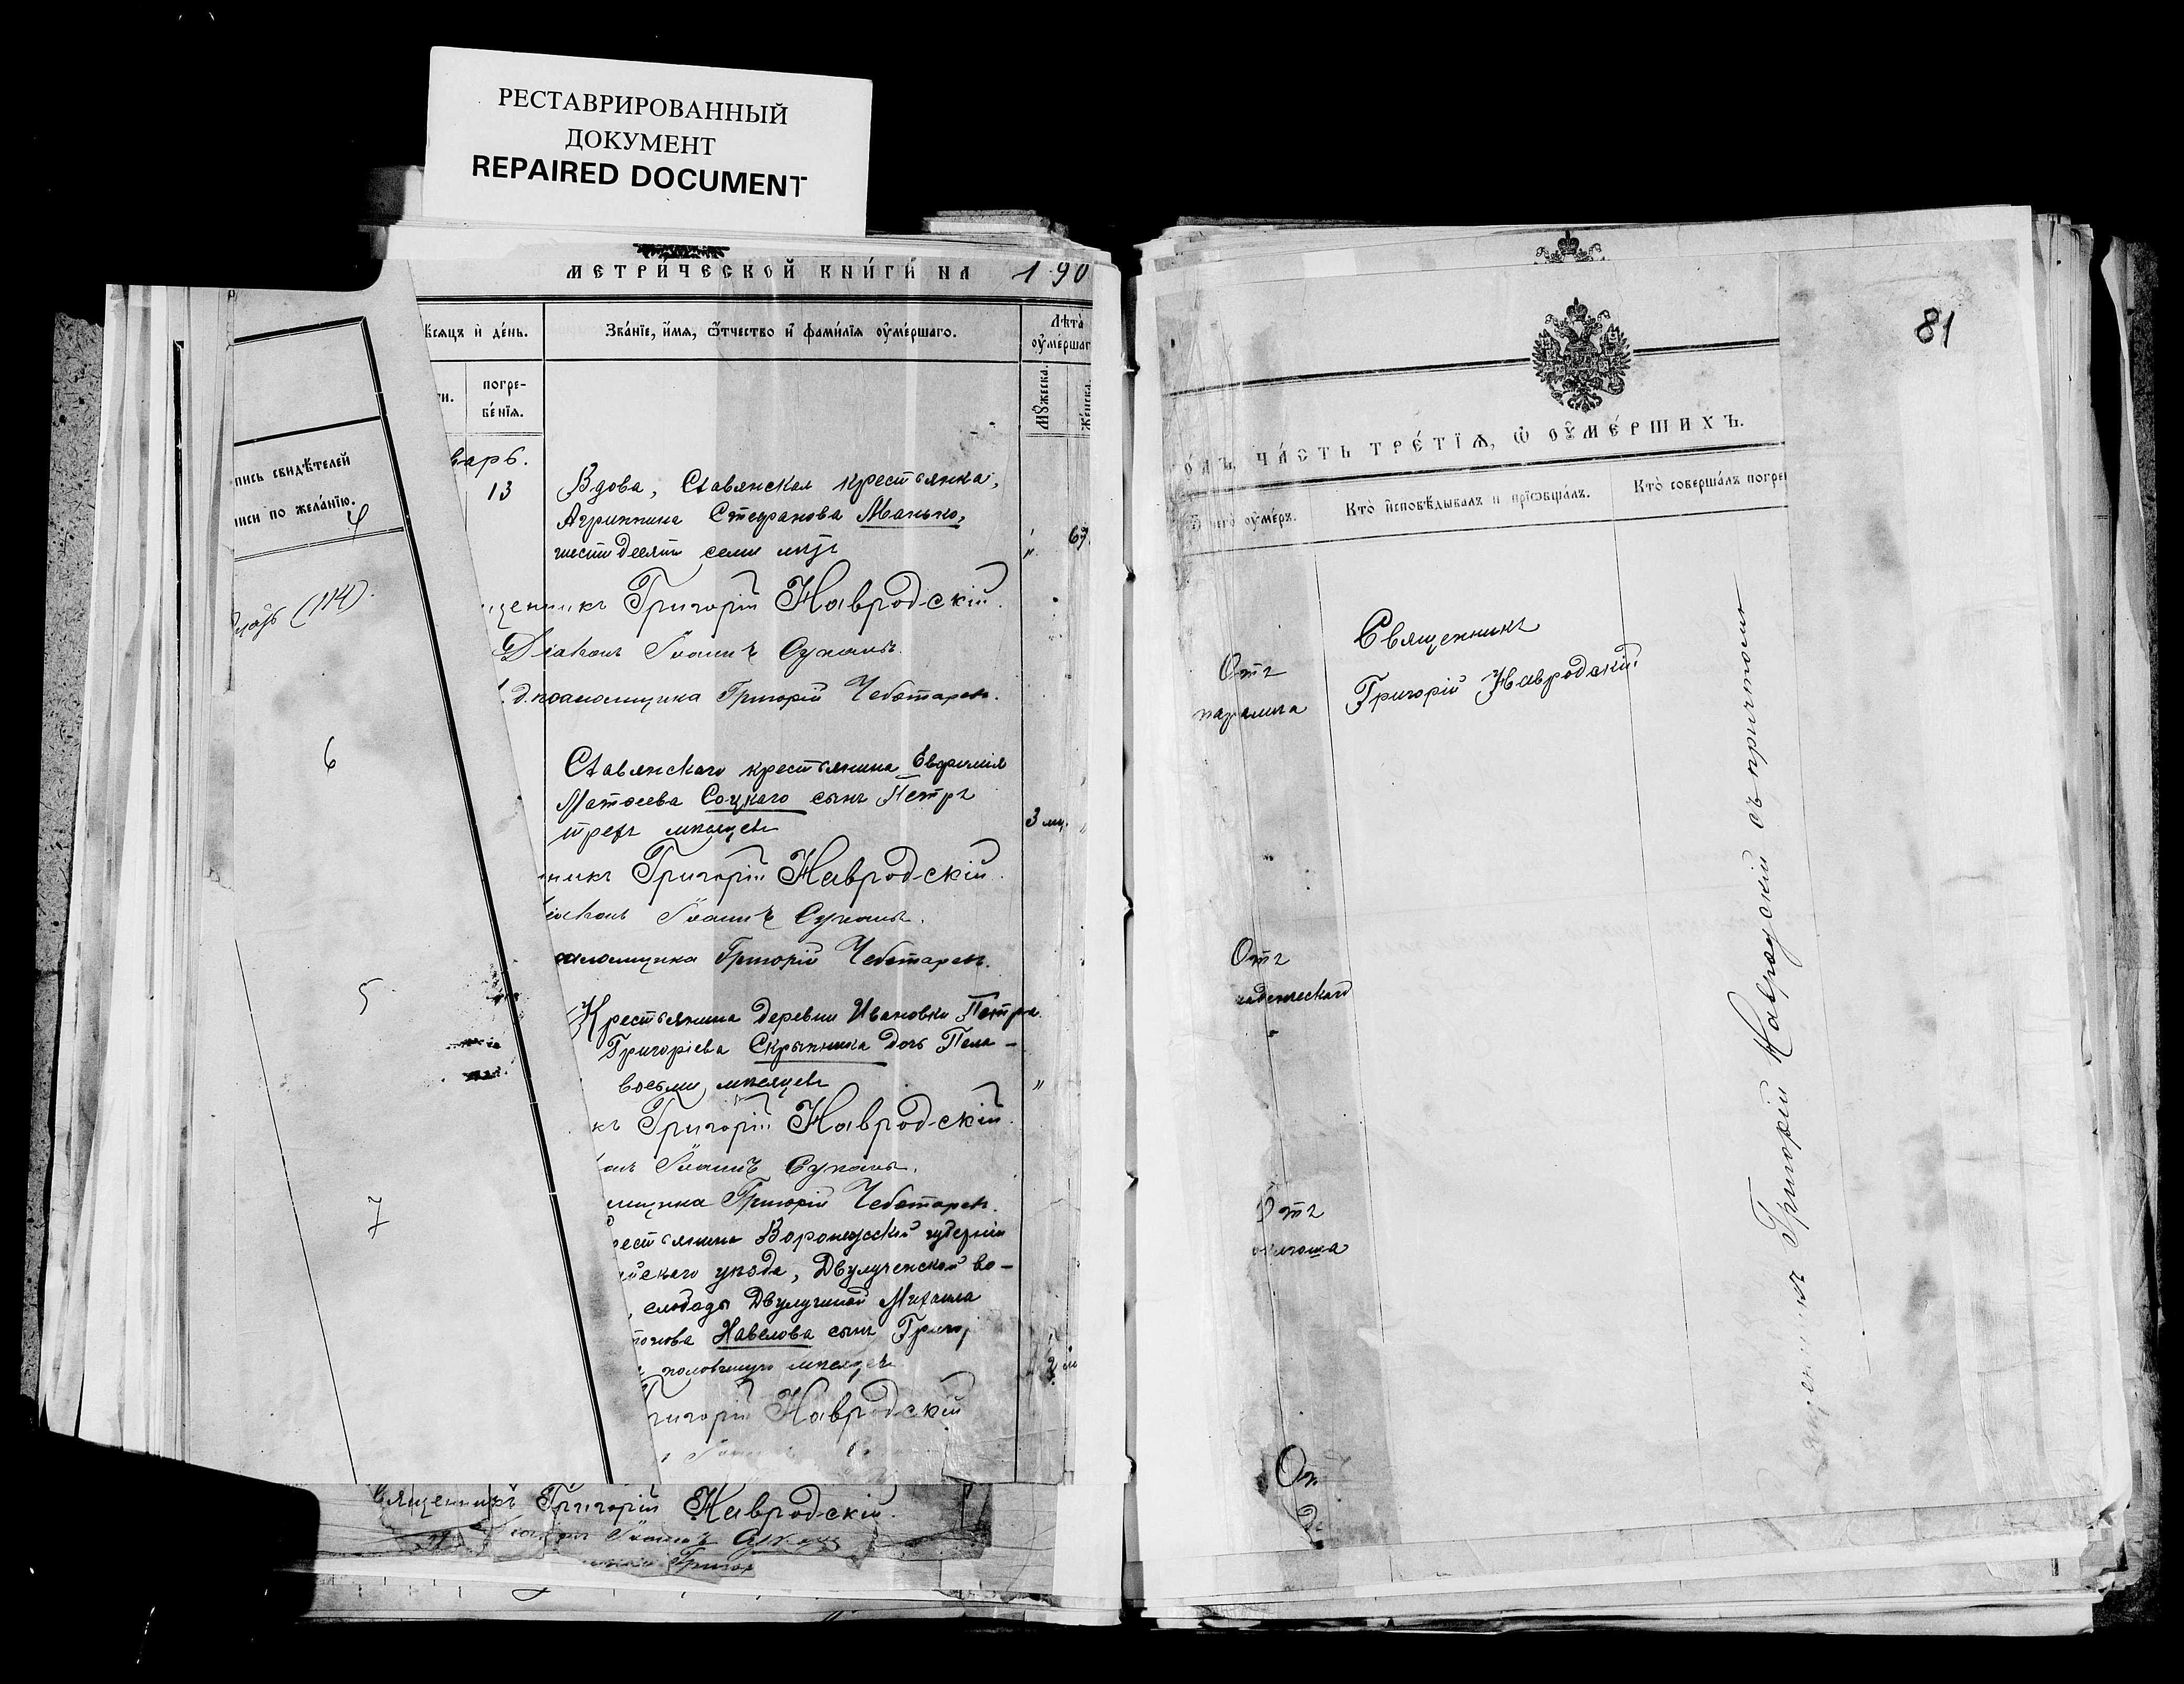 РЕСТАВРИРОВАННЫЙ
ДОКУМЕНТ
REPAIRED DOCUMENT
МЕТРИ́ЧЕСКОЙ КНИ́ГИ НА 190
пись свидѣтелей
иси по жела́нїю.
4
(114).
6
5
7
ѣсяцъ и де́нь.
погре-
бе́нїя.
Зва́нїе, и́мя, ѻ҆́тчество и фами́лїя оу҆ме́ршаго.
Лѣта̀
оу҆ме́ршаг
Мꙋжеска.
Женска.
варь.
13
Вдова, Славянская крестьянка,
Агриппина Стефанова Манько,
шестидесяти семи лѣтъ
" 67.
щенникъ Григорій Навродскій.
Діаконъ Іоаннъ
д. псаломщика Григорій Чеботаревъ.
Славянскаго крестьянина Евфимія
Матѳеева Соцкаго сынъ Петръ
трехъ мѣсяцевъ
3 мѣ. "
никъ Григорій Навродскій.
іаконъ Іоаннъ
саломщика Григорій Чеботаревъ.
Крестьянина деревни Ивановки Петра
Григоріева Скрыпника дочь Пела-
восьми мѣсяцевъ
"
къ Григорій Навродскій.
онъ Іоаннъ
мщика Григорій Чеботаревъ.
рестьянина Воронежской губерніи
йскаго уѣзда, Двулученской во-
, слободы Двулучной Михаила
Павлова сынъ Григор
половиною мѣсяцевъ
ригорій Навродскій
Священникъ Григорій Навродскій.
Іоаннъ
Григор
81
о́дъ, ЧА́СТЬ ТРЕ́ТЇѦ, Ѡ҆ ОУ҆МЕ́РШИХЪ.
чего̀ оу҆́меръ.
Кто̀ и҆сповѣ́дывалъ и҆ прїѡбща́лъ.
Кто̀ соверша́лъ погре
Отъ
паралича
Священникъ
Григорій Навродскій
Отъ
младенческаго
Отъ
Священникъ Григорій Навродскій съ причтомъ